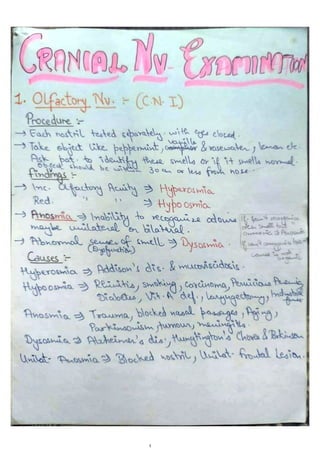 CRANIAL NV EXAMINATION
1. Olfactory Nv. :- (C·N· I)
Procedure :-
→ Each nostril tested separately with eyes closed.
→ Take object like peppermint, vanilla & rosewater, lemon etc.
Ask pat. to identify these smells or if it smells normal.
Object should be within 30 cm or less from nose.
Findings :-
→ Inc. Olfactory Acuity ⇒ Hyperosmia
Red. " " ⇒ Hypoosmia
→ Anosmia ⇒ Inability to recognise odours
maybe unilateral or bilateral.
→ Abnormal sense of smell ⇒ Dysosmia.
(Dysfunction)
Causes :-
Hyperosmia ⇒ Addison's dis. & mucoviscidosis.
Hypoosmia ⇒ Rhinitis, smoking, carcinoma, Pernicious Anaemia
Diabetes, Vit. A def., laryngectomy, Industrial
Anosmia ⇒ Trauma, blocked nasal passages, Aging,
Parkinsonism, tumour, meningitis.
Dysosmia ⇒ Alzheimer's dis., Hungtington's Chorea & Parkinson
Unilat. Anosmia ⇒ Blocked nostril, Unilat. frontal Lesion.